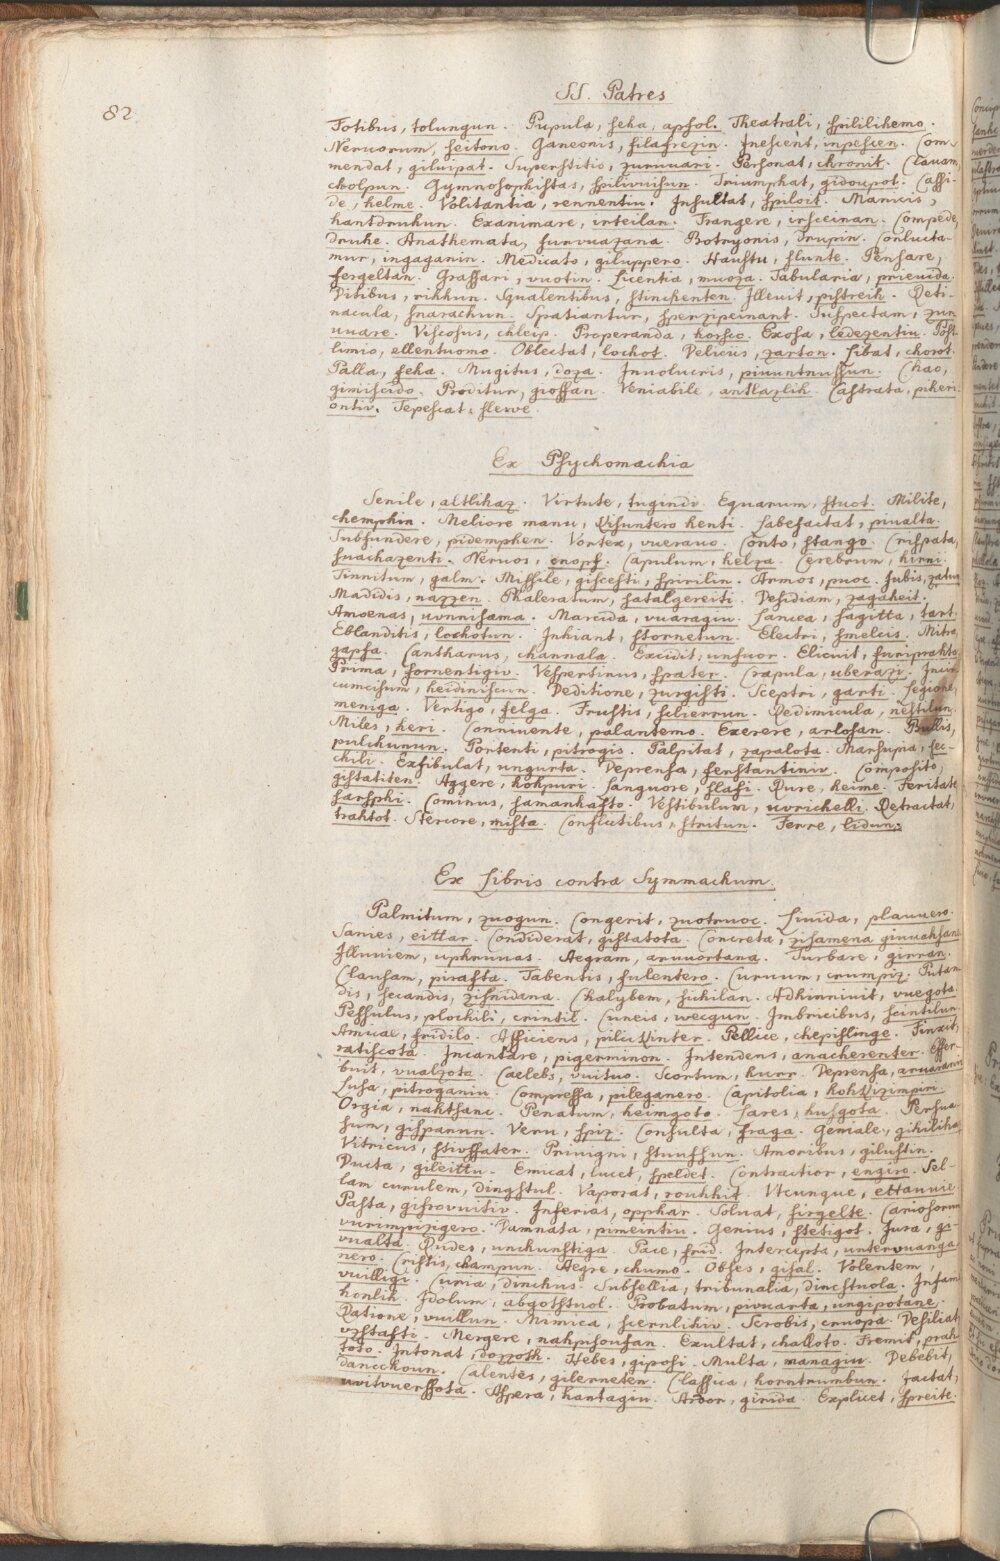 82
SS. Patres
Fotibus, tolungun. Pupula, seha, apfol. Theatrali, spililihemo.
Nervorum, seitono. Ganeonis, filafrezin. Inescent, inpescen. Com-
mendat, giluipat. Superstitio, zuruuari. Personat, chronit. Clauam,
cholpun. Gymnosophistas, spiliuuisun. Triumphat, gidoupot. Cassi-
de, helme. Volitantia, rennentiu. Insultat, spiloit. Manicis,
hantdruhun. Exanimare, irteilan. Frangere, irsceinan. Compede,
druhe. Anathemata, furuuazana. Botryonis, Drupin. Conlucta-
mur, ingaganin. Medicato, giluppero. Haustu, slunte. Pensare,
fergeltan. Grassari, vuotin. Licentia, muoza. Tabularia, prieuida.
Vitibus, rihhun. Squalentibus, stinchenten. Illeuit, pistreih. Reti-
nacula, snarachun. Spatiantur, sperzipeinant. Suspectam, zur
uuare. Viscosus, chleip. Properanda, horsco. Exosa, ledezentiu. Post
limio, ellentuomo. Oblectat, lochot. Deliciis, zarton. Libat, chorot.
Palla, feha. Mugitus, doza. Involucris, piuuntnussun. Chao,
gimiscido. Proditur, gioffan. Veniabile, antlazlih. Castrata, pihere
ontiv. Tepescat, slewe.
Ex Psychomachia
Senile, altlihaz. Virtute, tugindi. Equarum, stuot. Milite,
chemphin. Meliore manu, Visuntero henti. Labefactat, piualta.
Subfundere, pidemphen. Vortex, vueravo. Conto, stango. Crispata,
suachazenti. Nervos, cnops. Capulum, helza. Cerebrum, hirni.
Tinnitum, galm. Missile, giscefti, spirilin. Armos, puoc. Iubis, zatun
Madidis, nazzen. Phaleratum, satalgereiti. Desidiam, zagaheit.
Amoenas, uunnisama. Marcida, vuaragiu. Lancea, sagitta, tart.
Eblanditis, lochotun. Inhiant, stornetun. Electri, smelcis. Mitra,
gapsa. Cantharus, channala. Excidit, unfuor. Elicuit, furiprahta
Prima, fornentigiv. Vespertinus, spater. Crapula, uberazi. Incir-
cumcisum, heidiniscun. Deditione, zurgifti. Sceptri, garti. Legione,
meniga. Vertigo, felga. Frustis, scherrun. Redimicula, nestilun.
Miles, heri. Conniuente, palantemo. Exerere, arlosan. Bullis,
pulchunun. Portenti, pitrogis. Palpitat, zapalota. Marsupia, sec-
chili. Exfibulat, ungurta. Deprensa, fenstantiniv. Composito,
gistatiten. Aggere, hohpuri. Languore, slafi. Rure, heime. Feritate
sarsphi. Cominus, samanhafto. Vestibulum, uurichelli. Retractat,
trahtot. Stercore, mista. Conflictibus, stritun. Ferre, lidun:
Ex Libris contra Symmachum.
Palmitum, zuogun. Congerit, zuotruoc. Liuida, plauuero.
Sanies, eittar. Condiderat, gistatota. Concreta, zisamena giuuahsan
Illuuiem, uphruuas. Aegram, aruuortana. Turbare, girran.
Clausam, pirafta. Tabentis, fulentero. Curuum, crumpiz. Putan
dis, secandis, zisnidana. Chalybem, sichilan. Adhinniuit, vuegota.
Pessulus, plochili, crintil. Cuneis, wecgun. Imbricibus, scintilun
Amicae, fridilo. Afficiens, pilu Vinter. Pellice, chepislinge. Finxit,
ratiscota. Incantare, pigerminon. Intendens, anacherenter. Effer-
buit, vualzota. Caelebs, vuituo. Scortum, hurr. Deprensa, aruaraniv
Lusa, pitroganiu. Compressa, pileganero. Capitolia, hohVizimpiri.
Orgia, nahtsanc. Penatum, heimgoto. Lares, husgota. Persua-
sum, gispanun. Veru, spiz. Consulta, fraga. Geniale, gihiliha
Vitricus, stiuffater. Priuigni, stuuffun. Amoribus, gilustin.
Ducta, gileittu. Emicat, lucet, speldet. Contractior, engiro. Sel-
lam curulem, dingstul. Vaporat, rouhhit. Vtcunque, ettauuie
Pasta, gifrovuitiv. Inferias, opphar. Soluat, firgelte. Cariosorum
vurimpizigero. Damnata, pimeintiu. Genius, stetigot. Iura, gi-
uualta. Rudes, unchunstiga. Pace, frid. Intercepta, unteruuanga
nero. Cristis, champun. Aegre, chumo. Obses, gisal. Volentem,
vuilligi. Curia, dinchus. Subsellia, tribunalia, dincstuola. Infam
honlih. Idolum, abgotstuol. Probatum, piuuarta, ungipotane.
Ratione, vuillun. Mimica, scernlihiv. Scrobis, cruopa. Desiliat,
vzstafti. Mergere, nahpisoufan. Exultat, challoto. Fremit, prah
toto. Intonat, dozzoth. Hebes, giposi. Multa, managiu. Debebit,
dancchoun. Calentes, gilerneten. Classica, horntrumbun. Iactat,
uuituuerffota. Aspera, hantagiu. Ardor, girida. Explicet, spreite.